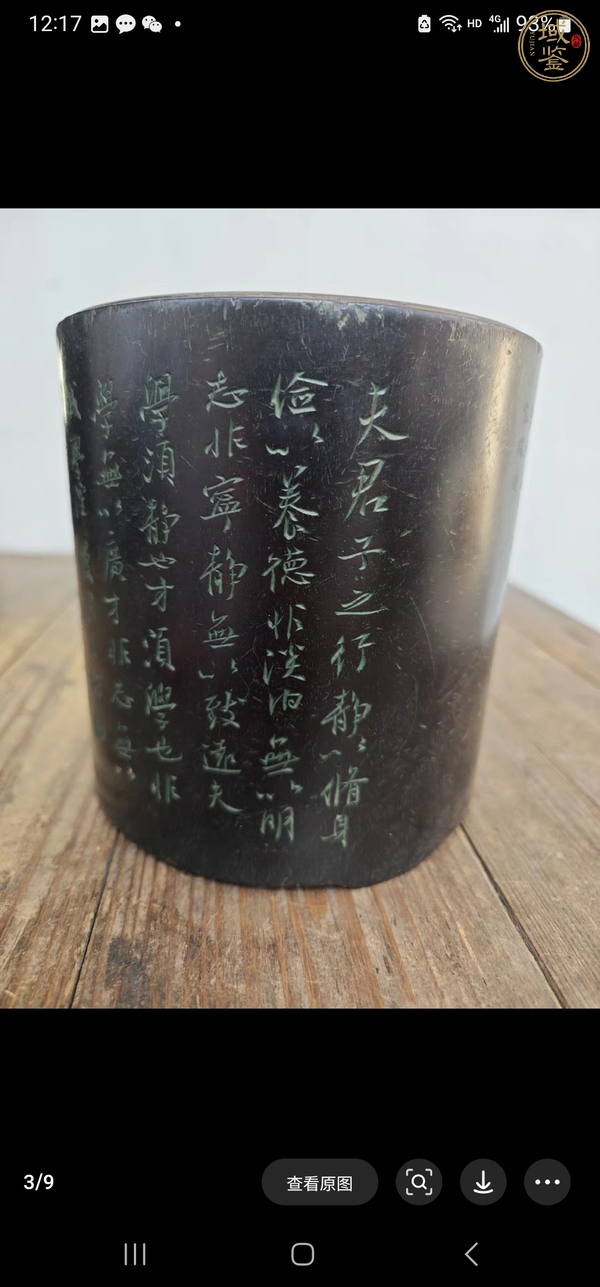 12:17
HD
4G
93%
域鉴
夫君子之行静以脩身
俭以養德非淡泊無以明
志非寧静無以致遠夫
學須静也才須學也非
學無以廣才非志無以
3/9
查看原图